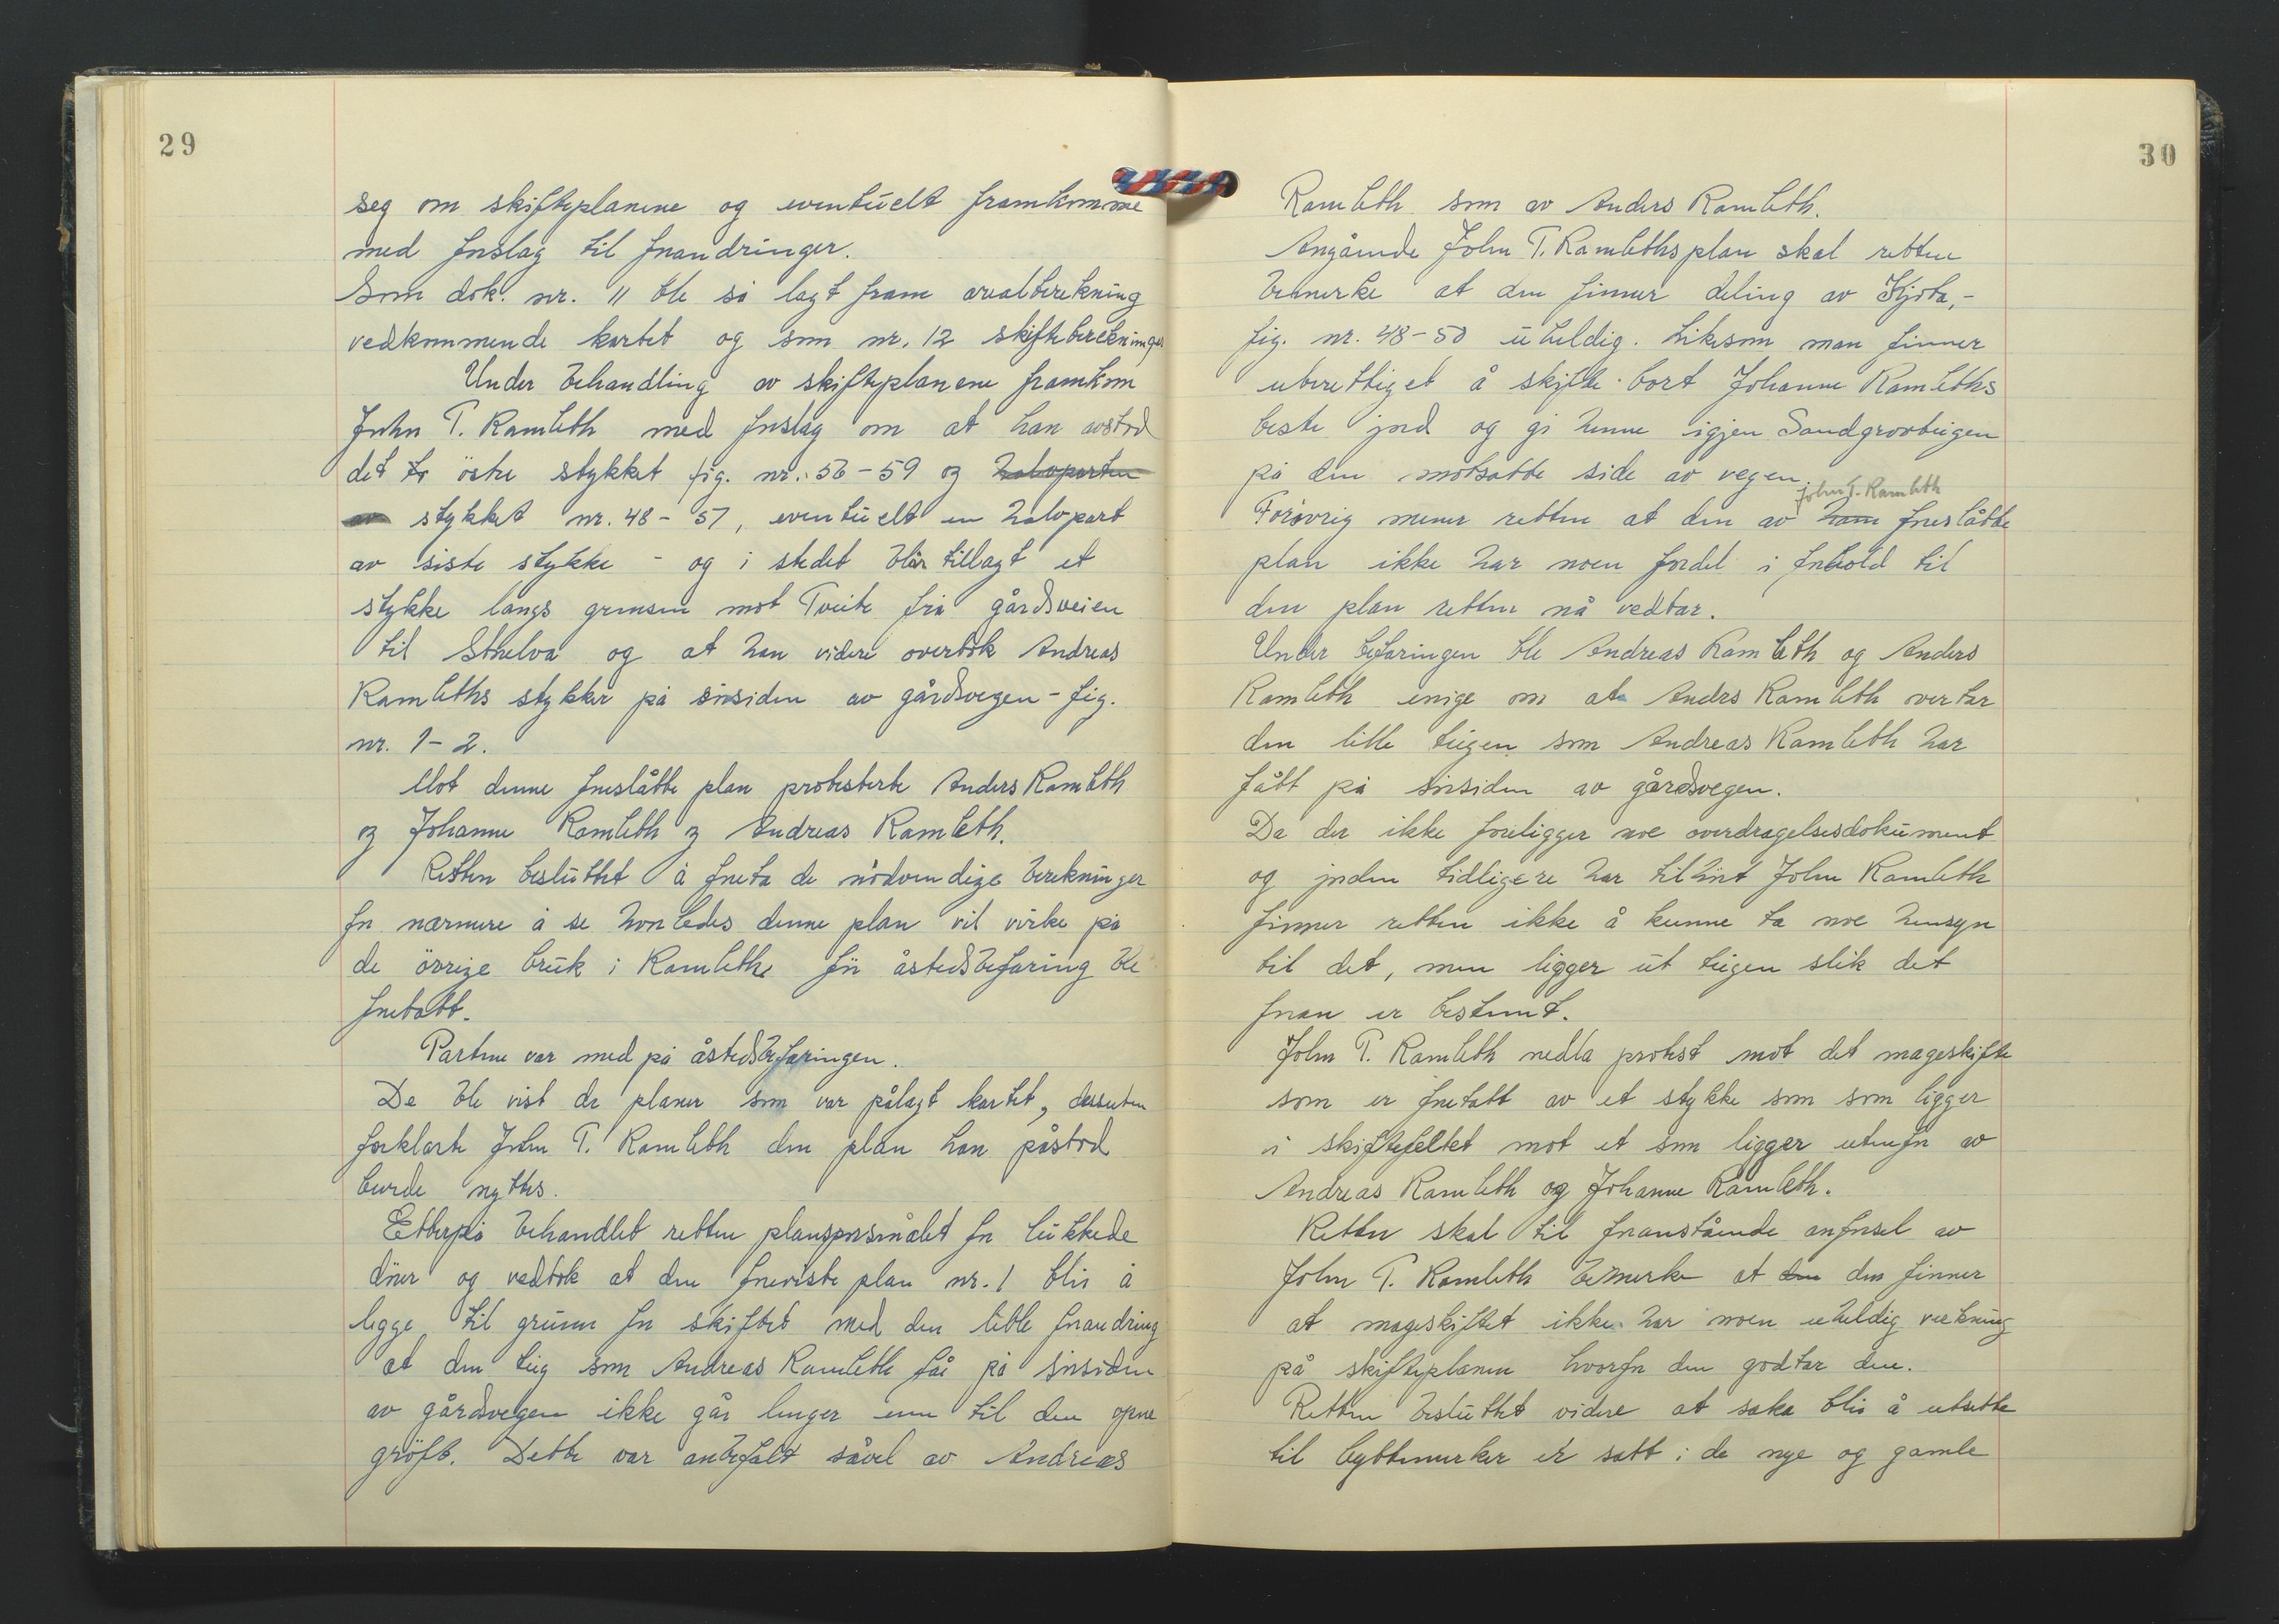 29
seg om skifteplanene og eventuelt framkomme
med forslag til forandringer.
Som dok. nr. 11 ble så lagt fram arealberekning
vedkommende kartet og som nr. 12 skifteberekninger
Under behandling av skifteplanene framkom
John T. Ramleth med forslag om at han avstod
det to østre stykket fig. nr. 56-59 og halvparten
av stykket nr. 48-57, eventuelt en halvpart
av siste stykke - og i stedet blir tillagt et
stykke langs grensen mot Tveite fra gårdsveien
til Storelva og at han videre overtok Andreas
Ramleths stykker på sørsiden av gårdsvegen - fig.
nr. 1-2.
Mot denne foreslåtte plan protesterte Anders Ramleth
og Johanne Ramleth og Andreas Ramleth.
Retten besluttet å foreta de nødvendige berekninger
for nærmere å se hvorledes denne plan vil virke på
de øvrige bruk i Ramlethe før åstedsbefaring ble
foretatt.
Partene var med på åstedsbefaringen.
De ble vist de planer som var pålagt kartet, dessuten
forklarte John T. Ramleth den plan han påstod
burde nyttes.
Etterpå behandlet retten planspørsmålet for lukkede
dører og vedtok at den foreviste plan nr. 1 blir å
legge til grunn for skiftet med den lille forandring
at den teig som Andreas Ramleth får på sørsiden
av gårdsvegen ikke går lenger enn til den opne
grøft. Dette var anbefalt såvel av Andreas
30
Ramleth som av Anders Ramleth.
Angående John T. Ramleths plan skal retten
bemerke at den finner deling av Kjota,-
fig. nr. 48-50 uheldig. Likesom man finner
uberettiget å skifte bort Johanne Ramleths
beste jord og gi henne igjen Sandgrovteigen
på den motsatte side av vegen.
John T. Ramleth
Forøvrig mener retten at den av ham foreslåtte
plan ikke har noen fordel i forhold til
den plan retten nå vedtar.
Under befaringen ble Andreas Ramleth og Anders
Ramleth enige om at Anders Ramleth overtar
den lille teigen som Andreas Ramleth har
fått på sørsiden av gårdsvegen.
Da der ikke foreligger noe overdragelsesdokument
og jorden tidligere har tilhørt John Ramleth
finner retten ikke å kunne ta noe hensyn
til det, men ligger ut teigen slik det
foran er bestemt.
John T. Ramleth nedla protest mot det mageskifte
som er foretatt av et stykke som som ligger
i skiftefeltet mot et som ligger utenfor av
Andreas Ramleth og Johanne Ramleth.
Retten skal til foranstående anførsel av
John T. Ramleth bemerke at den den finner
at mageskiftet ikke har noen uheldig verkning
på skifteplanen hvorfor den godtar den.
Retten besluttet videre at saka blir å utsette
til byttemerker er satt i de nye og gamle